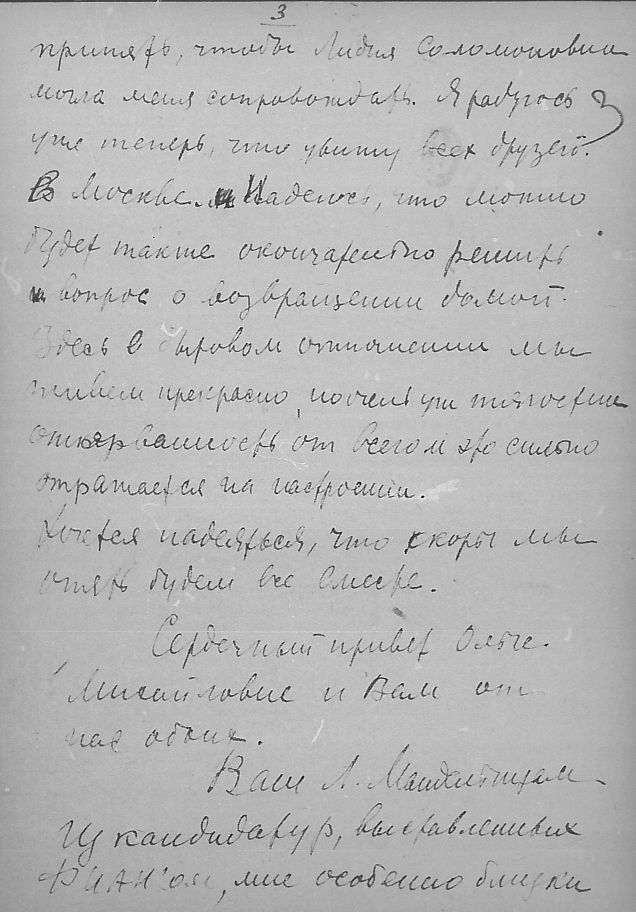 3
принять, чтобы Лидия Соломоновна
могла меня сопровождать. Я радуюсь
уже теперь, что увижу всех друзей.
В Москве. Надеюсь, что можно
будет также окончательно решить
вопрос о возвращении домой.
Здесь в бытовом отношении мы
живем прекрасно, но очень уж тягостна
оторванность от всего и это сильно
отражается на настроении.
Хочется надеяться, что скоро мы
опять будем все вместе.
Сердечный привет Ольге
Михайловне и Вам от
нас обоих.
Ваш Л. Мандельштам
Из кандидатур, выставленных
ФИАН'ом, мне особенно близки